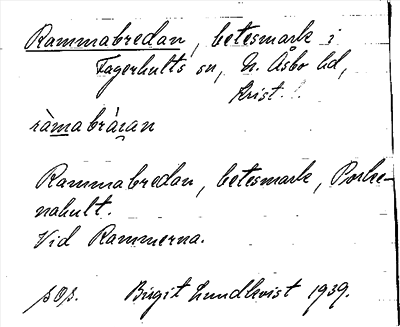 Rammabredan, betesmark i
Fagerhults sn, N. Åsbo hd,
Krist. l.
ràmabrázan
Rammabredan, betesmark, Porke-
nahult.
Vid Rammerna.
Birgit Lundkvist 1939.